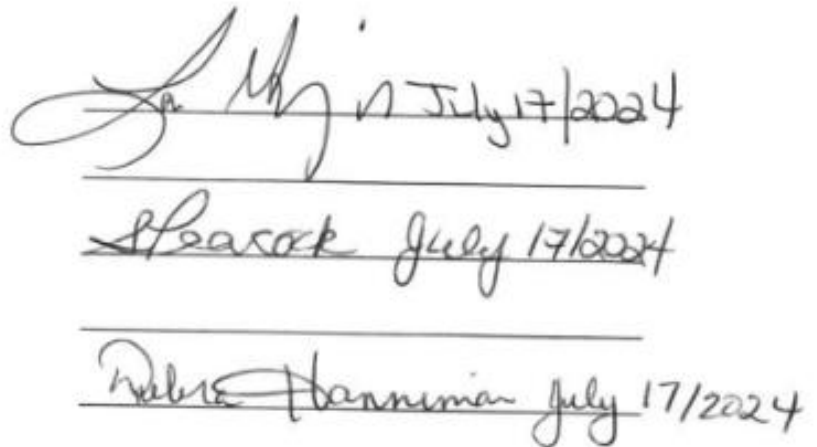 July 17/2024
SPeacock July 17/2024
Debra Hanniman July 17/2024